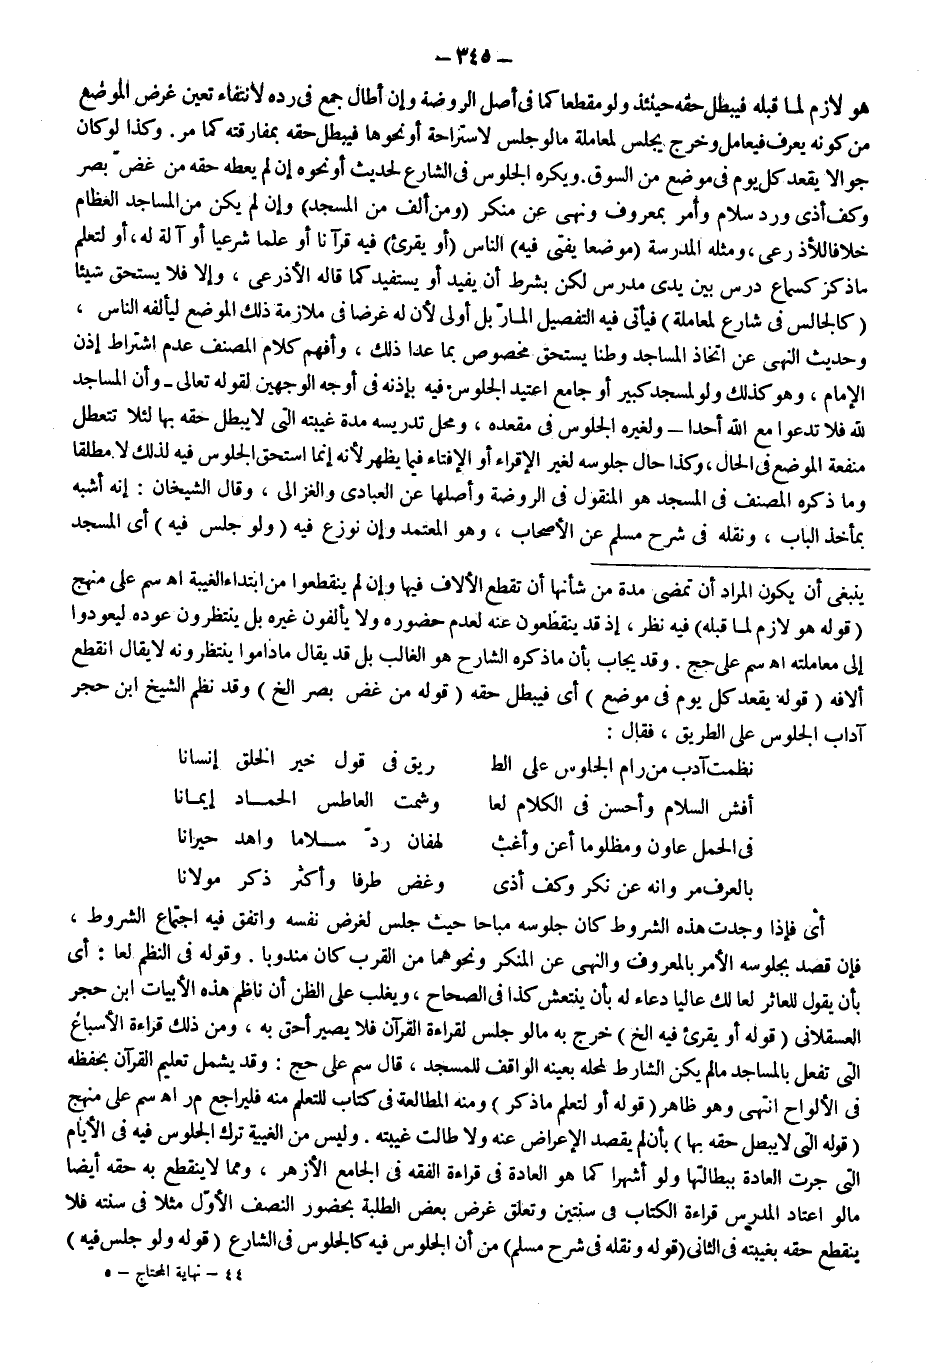 — ٣٤٥ —
هو لازم لما قبله فيبطل حقه حينئذ ولو مقطعا كما فى أصل الروضة وإن أطال جمع فى رده لانتفاء تعين غرض الموضع
من كونه يعرف فيعامل وخرج بجلس لمعاملة مالو جلس لاستراحة أو نحوها فيبطل حقه بمفارقته كما مر. وكذا لو كان
جوالا يقعد كل يوم فى موضع من السوق. ويكره الجلوس فى الشارع لحديث أو نحوه إن لم يعطه حقه من غض بصر
وكف أذى ورد سلام وأمر بمعروف ونهى عن منكر (ومن ألف من المسجد) وإن لم يكن من المساجد العظام
خلافا للأذرعى، ومثله المدرسة (موضعا يفتى فيه) الناس (أو يقرئ) فيه قرآنا أو علما شرعيا أو آلة له، أو لتعلم
ماذكر كسماع درس بين يدى مدرس لكن بشرط أن يفيد أو يستفيد كما قاله الأذرعى ، وإلا فلا يستحق شيئا
( كالجالس فى شارع لمعاملة ) فيأتى فيه التفصيل المارّ بل أولى لأن له غرضا فى ملازمة ذلك الموضع ليألفه الناس ،
وحديث النهى عن اتخاذ المساجد وطنا يستحق مخصوص بما عدا ذلك ، وأفهم كلام المصنف عدم اشتراط إذن
الإمام ، وهو كذلك ولو لمسجد كبير أو جامع اعتيد الجلوس فيه بإذنه فى أوجه الوجهين لقوله تعالى ـ وأن المساجد
لله فلا تدعوا مع الله أحدا ـ ولغيره الجلوس فى مقعده ، ومحل تدريسه مدة غيبته التى لا يبطل حقه بها لئلا تتعطل
منفعة الموضع فى الحال ، وكذا حال جلوسه لغير الإقراء أو الإفتاء فيما يظهر لأنه إنما استحق الجلوس فيه لذلك لا مطلقا
وما ذكره المصنف فى المسجد هو المنقول فى الروضة وأصلها عن العبادى والغزالى ، وقال الشيخان : إنه أشبه
بمأخذ الباب ، ونقله فى شرح مسلم عن الأصحاب ، وهو المعتمد وإن نوزع فيه ( ولو جلس فيه ) أى المسجد
ينبغى أن يكون المراد أن تمضى مدة من شأنها أن تقطع الألاف فيها وإن لم ينقطعوا من ابتداء الغيبة اه سم على منهج
( قوله هو لازم لما قبله) فيه نظر ، إذ قد ينقطعون عنه لعدم حضوره ولا يألفون غيره بل ينتظرون عوده ليعودوا
إلى معاملته اه سم على حج . وقد يجاب بأن ماذكره الشارح هو الغالب بل قد يقال ماداموا ينتظرونه لايقال انقطع
ألافه ( قوله يقعد كل يوم فى موضع ) أى فيبطل حقه ( قوله من غض بصر الخ ) وقد نظم الشيخ ابن حجر
آداب الجلوس على الطريق ، فقال :
نظمت آدب من رام الجلوس على الط ريق فى قول خير الخلق إنسانا
أفش السلام وأحسن فى الكلام لعا وشمت العاطس الحماد إيمانا
فى الحمل عاون ومظلوما أعن وأغث لهفان ردّ سلاما واهد حيرانا
بالعرف مر وانه عن نكر وكف أذى وغض طرفا وأكثر ذكر مولانا
أى فإذا وجدت هذه الشروط كان جلوسه مباحا حيث جلس لغرض نفسه واتفق فيه اجتماع الشروط ،
فإن قصد بجلوسه الأمر بالمعروف والنهى عن المنكر ونحوهما من القرب كان مندوبا . وقوله فى النظم لعا : أى
بأن يقول للعاثر لعا لك عاليا دعاء له بأن ينتعش كذا فى الصحاح ، ويغلب على الظن أن ناظم هذه الأبيات ابن حجر
العسقلانى ( قوله أو يقرئ فيه الخ ) خرج به مالو جلس لقراءة القرآن فلا يصير أحق به ، ومن ذلك قراءة الأسباغ
التى تفعل بالمساجد مالم يكن الشارط لمحله بعينه الواقف للمسجد ، قال سم على حج : وقد يشمل تعليم القرآن بحفظه
فى الألواح انتهى وهو ظاهر ( قوله أو لتعلم ماذكر ) ومنه المطالعة فى كتاب للتعلم منه فليراجع مر اه سم على منهج
( قوله التى لايبطل حقه بها ) بأن لم يقصد الإعراض عنه ولا طالت غيبته . وليس من الغيبة ترك الجلوس فيه فى الأيام
التى جرت العادة ببطالتها ولو أشهرا كما هو العادة فى قراءة الفقه فى الجامع الأزهر ، ومما لاينقطع به حقه أيضا
مالو اعتاد المدرس قراءة الكتاب فى سنتين وتعلق غرض بعض الطلبة بحضور النصف الأوّل مثلا فى سنته فلا
ينقطع حقه بغيبته فى الثانى (قوله ونقله فى شرح مسلم) من أن الجلوس فيه كالجلوس فى الشارع ( قوله ولو جلس فيه )
٤٤ — نهاية المحتاج — ٥